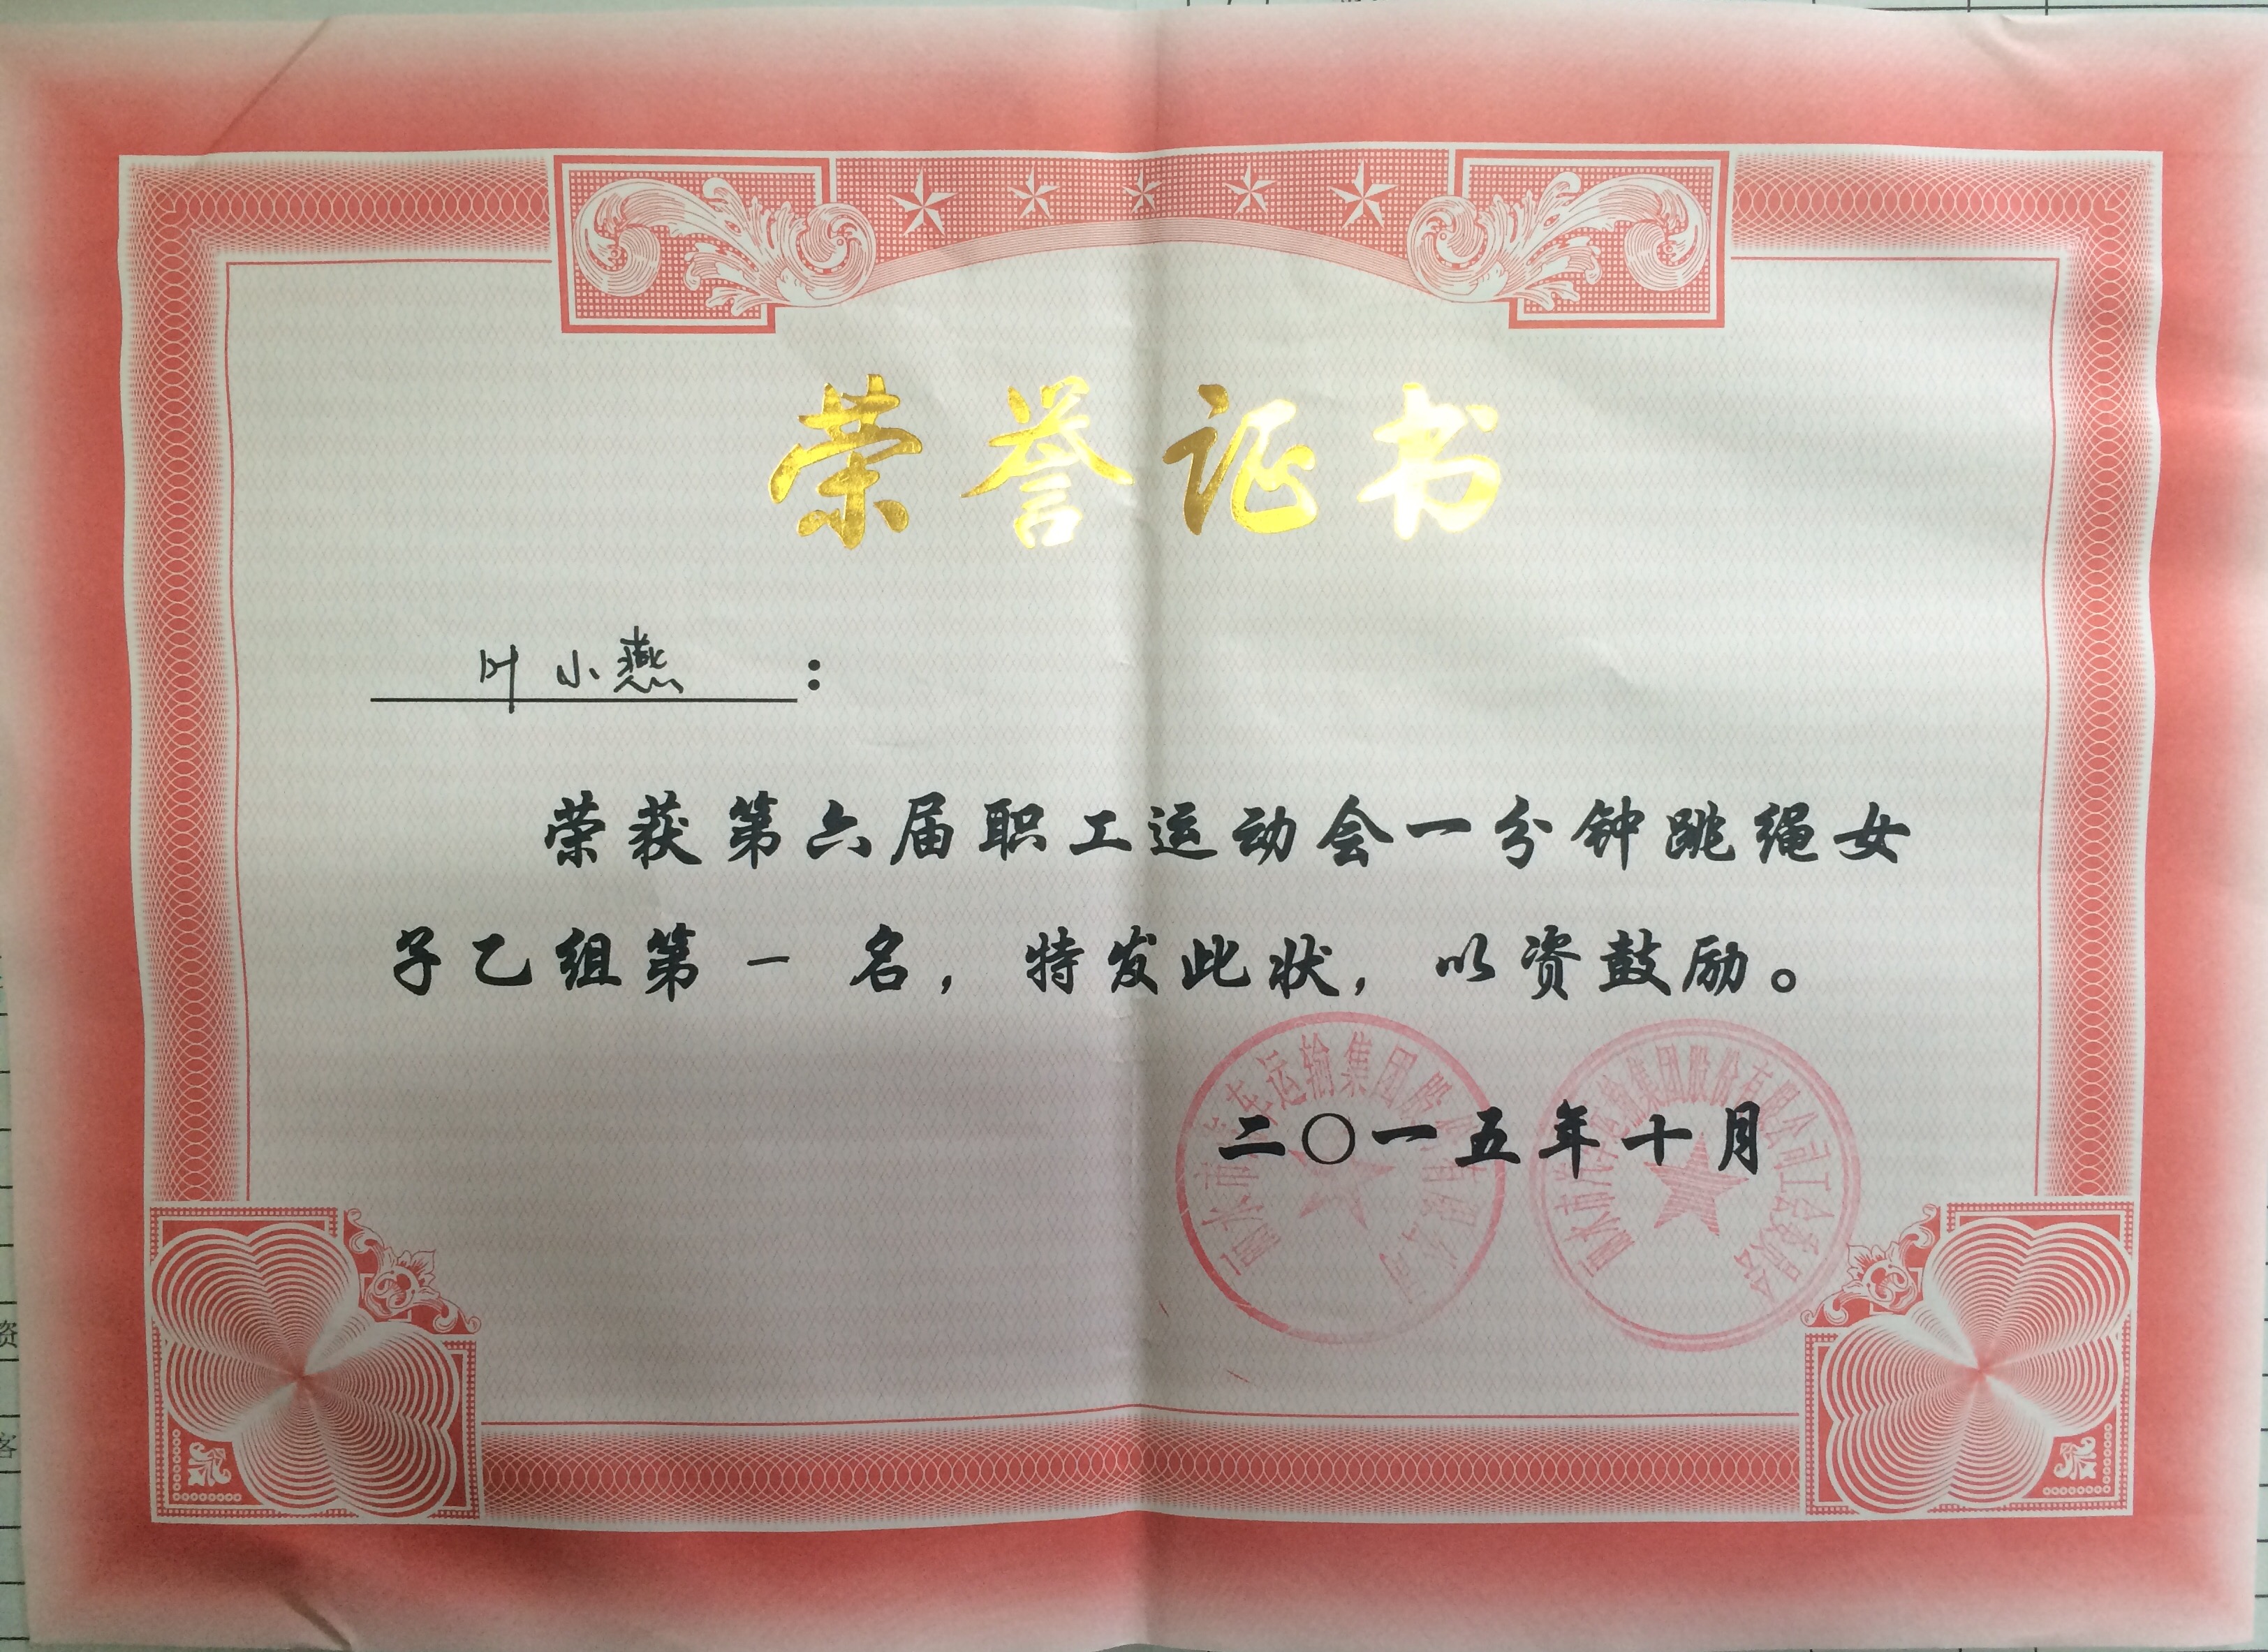 荣誉证书
叶小燕：
荣获第六届职工运动会一分钟跳绳女
子乙组第一名，特发此状，以资鼓励。
丽水市汽车运输集团股份有限公司
丽水市汽车运输集团股份有限公司工会委员会
二〇一五年十月
资
客